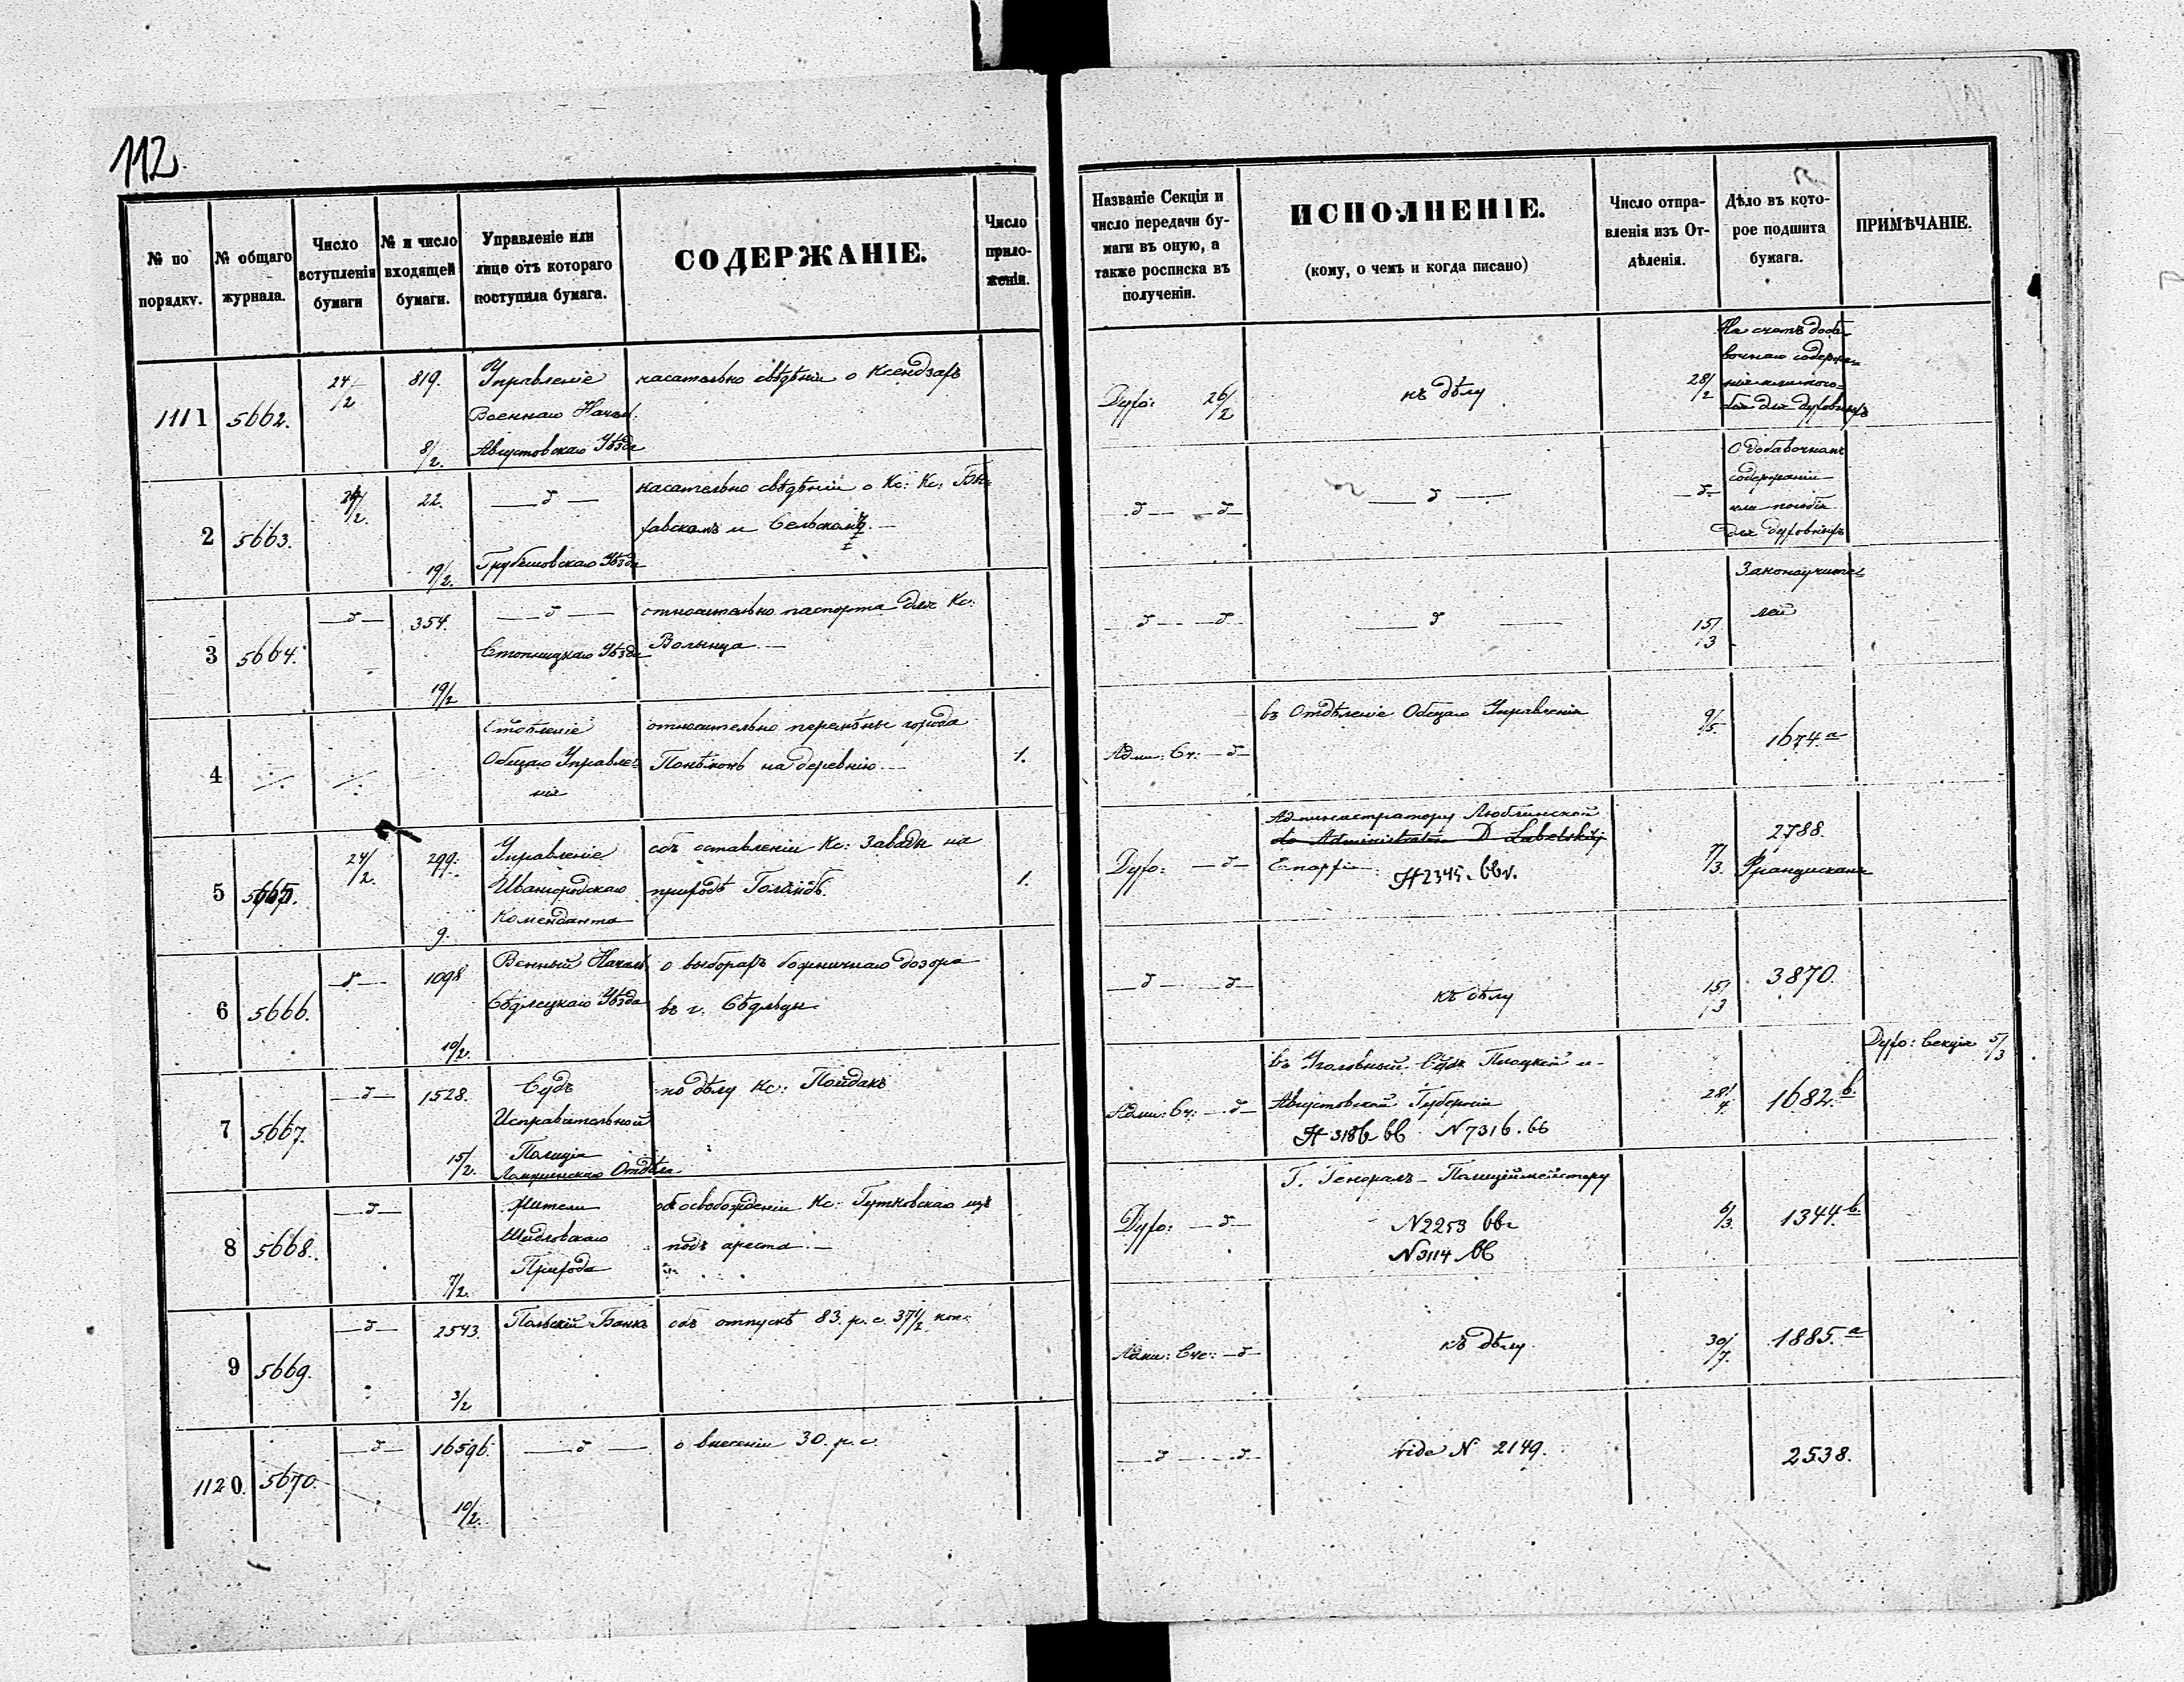 112.
№ по порядку.
№ общаго журнала.
Число вступленія бумаги
№ и число входящей бумаги.
Управленіе или лице отъ котораго поступила бумага.
СОДЕРЖАНІЕ.
Число прило-
женія.
Названіе Секціи и
число передачи бу-
маги въ оную, а
также росписка въ
полученіи.
ИСПОЛНЕНІЕ.
(кому, о чемъ и когда писано)
Число отпра-
вленія изъ От-
дѣленія.
Дѣло въ кото-
рое подшита
бумага.
ПРИМѢЧАНІЕ.
1111 5662. 24/2 819. 8/2.
Управленіе
Военнаго Начал:
Августовскаго Уѣзда
касательно свѣдѣніи о Ксендзахъ
Духо: 26/2
къ дѣлу
28/2
На счетъ доба-
вочнаго содержа-
для духовныхъ
2 5663. 24/2. 22. 19/2.
— δ —
Грубешовскаго Уѣзда
касательно свѣдѣніи о Кс: Кс:
— δ — — δ —
— δ —
— δ —
О добавочномъ
содержаніи
или пособіи
для духовныхъ
3 5664. — δ — 354. 19/2
— δ —
Стопницкаго Уѣзда
относительно паспорта для Кс:
Волынца. —
— δ — — δ —
— δ —
15/3
Законоучите-
лей
4
Отдѣленіе
Общаго Управле-
нія
относительно перемѣны города
на деревню. —
1.
Адми: Сч: — δ —
въ Отдѣленіе Общаго Управленія
9/5.
1674.a
5 5665. 24/2. 299. 9.
Управленіе
Ивангородскаго
Коменданта
объ оставленіи Кс: Завады на
приходѣ Голѣмбѣ.
1.
Духо: — δ —
Администратору Люблинской
Епархіи. N 2345. bbr.
7/3.
2788.
Францискана
6 5666. — δ — 1098 10/2.
Военный Начал:
Сѣдлецкаго Уѣзда
о выборахъ божничнаго дозора
въ г. Сѣдльцы
— δ — — δ —
къ дѣлу
15/3
3870.
7 5667. — δ — 1528. 15/2.
Судъ
Исправительной
Полиціи
Ломжинскаго Отдѣла
по дѣлу Кс: Пойдакъ
Адми: Сч: — δ —
въ Уголовный Судъ Плоцкой и
Августовской Губерніи
N 3186 bb N 7316. bb
28/4
1682.b.
Духо: Секція 5/3
8 5668. — δ — 7/2.
Жители
Шидловскаго
Прихода
объ освобожденіи Кс: Гутковскаго изъ
подъ ареста. —
Духо: — δ —
Г. Генералъ-Полиціймейстеру
N 2253 bbr
N 3114 bb
6/3.
1344.b.
9 5669. — δ — 2543. 3/2
Польскій Банкъ
объ отпускѣ 83. р. с. 37 1/2 коп.
Адми: Сче: — δ —
къ дѣлу
30/7.
1885.a
1120. 5670. — δ — 16596. 10/2.
— δ —
о внесеніи 30. р. с.
— δ — — δ —
vide N 2149.
2538.